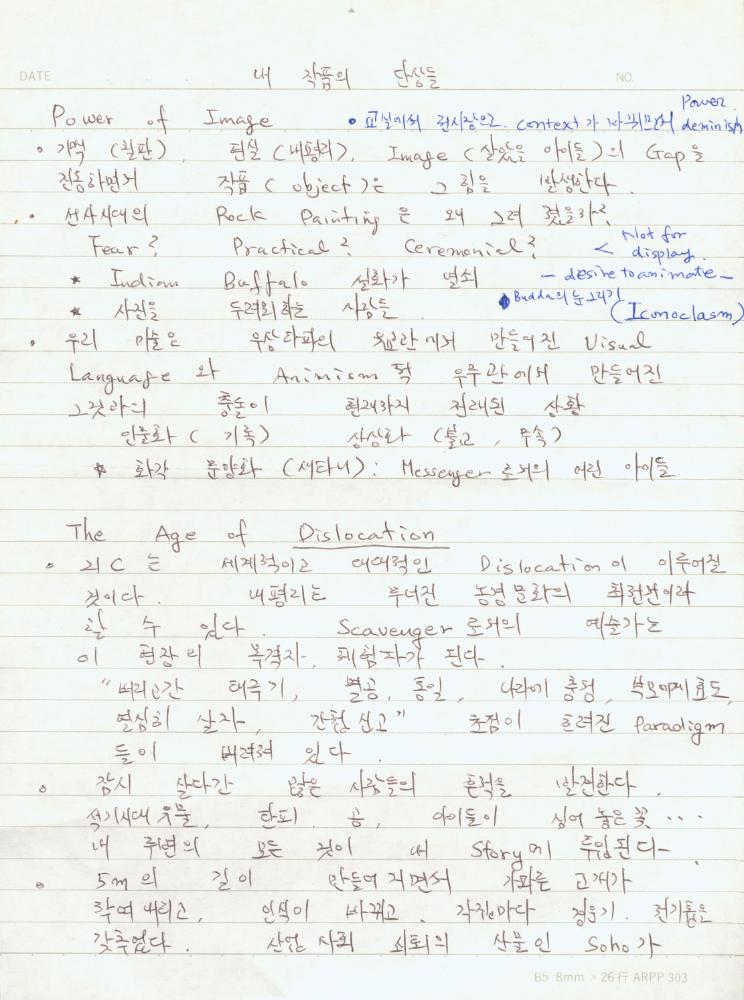 DATE
내 작품의 단상들
NO.
Power of Image
• 교실에서 전시장으로. context가 바뀌면서 Power deminish
• 기억 (칠판), 현실 (내평리), Image (살았을 아이들)의 Gap을
진동하면서 작품 (object)은 그 힘을 발생한다.
• 선사시대의 Rock Painting은 왜 그려 졌을까?
Fear? Practical? Ceremonial?
< Not for display.
* Indian Buffalo 설화가 열쇠
— desire to animate —
* 사진을 두려워하는 사람들.
Budda의 눈 그리기
(Iconoclasm)
• 우리 미술은 우상타파의 유교관에서 만들어진 Visual
Language와 Animism적 우주관에서 만들어진
그것과의 충돌이 현재까지 전래된 상황
인물화 (기록) 상상화 (불교, 무속)
* 화각 문양화 (새타니): Messenger로서의 어린 아이들
The Age of Dislocation
• 21C는 세계적이고 대대적인 Dislocation이 이루어질
것이다. 내평리는 무너진 농경문화의 최전선이라
할 수 있다. Scavenger로서의 예술가는
이 현장의 목격자, 체험자가 된다.
"버리고간 태극기, 멸공, 통일, 나라에 충성, 부모에게 효도,
열심히 살자, 간첩신고" 초점이 흐려진 Paradigm
들이 버려져 있다.
• 잠시 살다간 많은 사람들의 흔적을 발견한다.
석기시대 유물, 탄피, 공, 아이들이 심어 놓은 꽃...
내 주변의 모든 것이 내 Story에 투입된다.
• 5m의 길이 만들어 지면서 가파른 고개가
작여내리고, 인식이 바뀌고, 각집마다 경운기. 전기톱은
갖추었다. 산업사회 쇠퇴의 산물인 Soho가
B5 8mm × 26行 ARPP 303